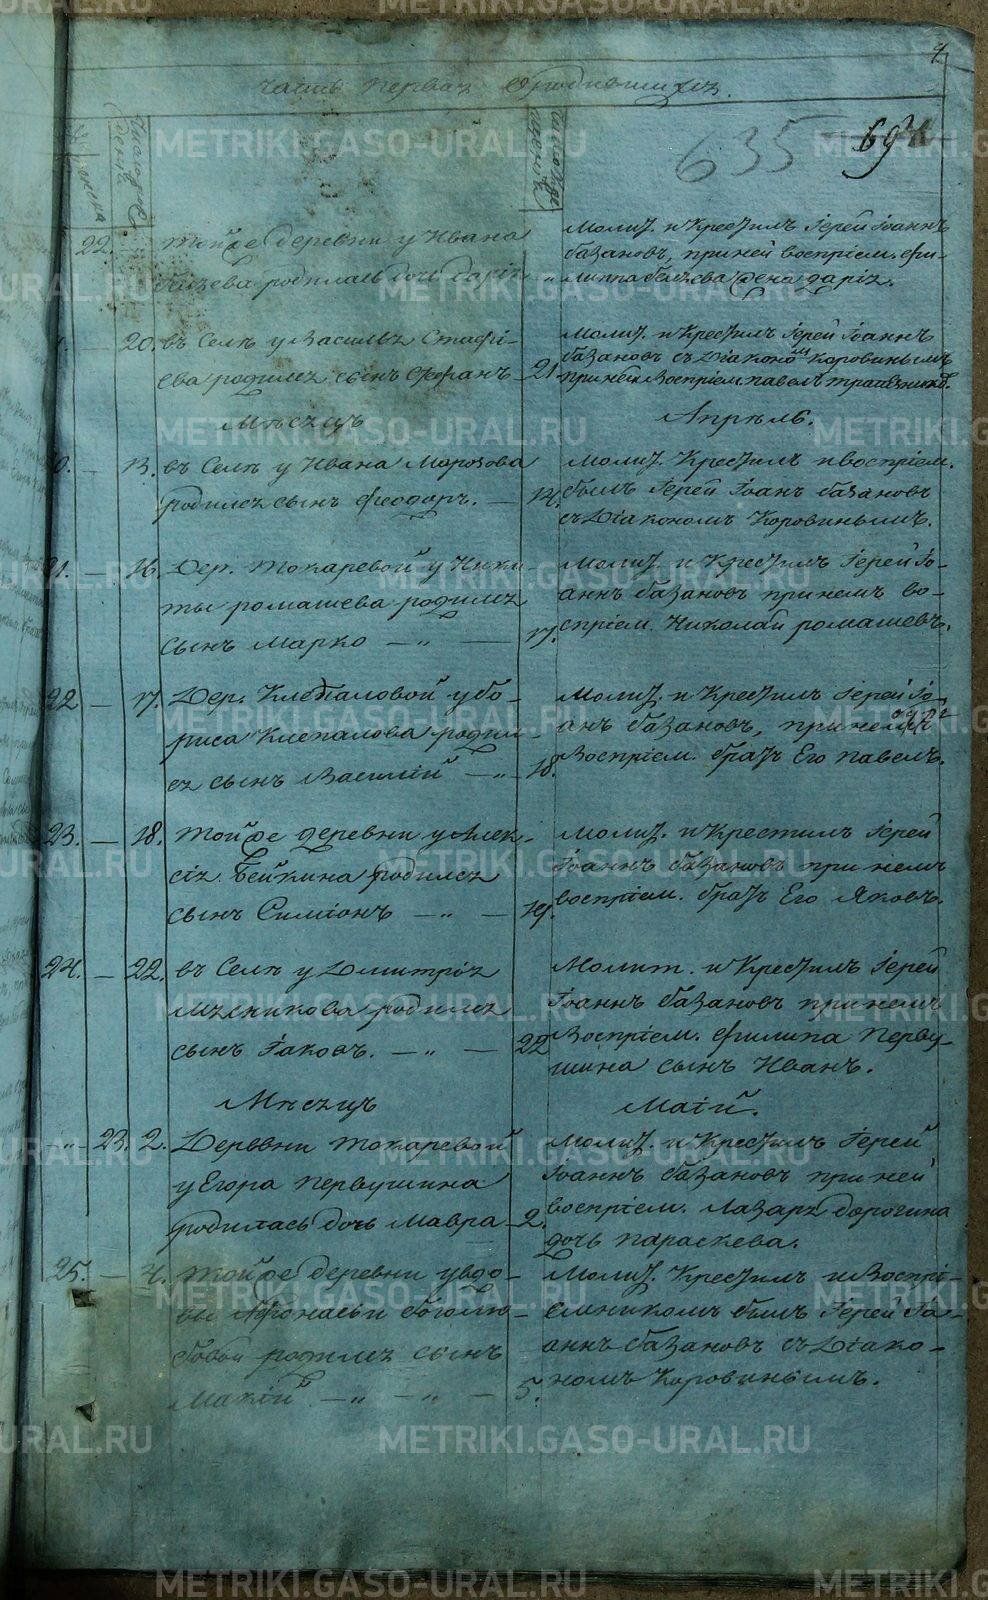 часть первая о родившихся.
635
22. тойже деревни у Ивана
родилась дочь Дарiя
Молит. и Крестилъ Iерей Iоаннъ
базановъ, при ней воспрiем. фи-
липпа жена дарiя.
20. въ Селѣ у Василья Стафѣ-
ева родился сынъ Стефанъ 21
Молит. и Крестилъ Iерей Iоаннъ
базановъ съ Дiакономъ Коровинымъ
при немъ воспрiем. павелъ трапезников.
Мѣсяцъ Апрѣль.
13. въ Селѣ у Ивана Морозова
родился сынъ феодоръ. — 14.
Молит. Крестилъ и воспрiем.
былъ Iерей Iоанъ базановъ
съ Дiакономъ Коровинымъ.
21. — 16. Дер. токаревой у Ники-
ты ромашева родился
сынъ Марко — „ — 17.
Молит. и Крестилъ Iерей Iо-
аннъ базановъ при немъ во-
спрiем. Николай ромашевъ.
22 — 17. Дер. Клепаловой у бо-
риса Клепалова роди-
ся сынъ Василiй — „ — 18.
Молит. и Крестилъ Iерей Iо-
анъ базановъ, при немъ
воспрiем. братъ Его павелъ.
23. — 18. тойже деревни у Алек-
сiя бейкина родился
сынъ Симiонъ — „ — 19.
Молит. и Крестилъ Iерей
Iоаннъ базановъ при немъ
воспрiем. братъ Его Яковъ.
24. — 22. въ Селѣ у Дмитрiя
мясникова родился
сынъ Iаковъ. — „ — 22
Молит. и Крестилъ Iерей
Iоаннъ базановъ при немъ
Воспрiем. филипа перву-
шина сынъ Иванъ.
Мѣсяцъ Маiй.
„ 23. 2. Деревни токаревой
у Егора первушина
родилась дочь Мавра — 2.
Молит. и Крестилъ Iерей
Iоаннъ базановъ при ней
воспрiем. Лазаря дорогина
дочь параскева.
25. — 4. тойже деревни у вдо-
вы Афонасьи боголю-
бовой родился сынъ
Макiй — „ — „ — 5.
Молит. Крестилъ и Воспрi-
емникомъ былъ Iерей Iо-
аннъ базановъ съ Дiако-
номъ Коровинымъ.
METRIKI.GASO-URAL.RU